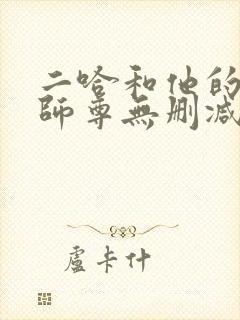 二哈和他的
師尊無刪減
盧卡什